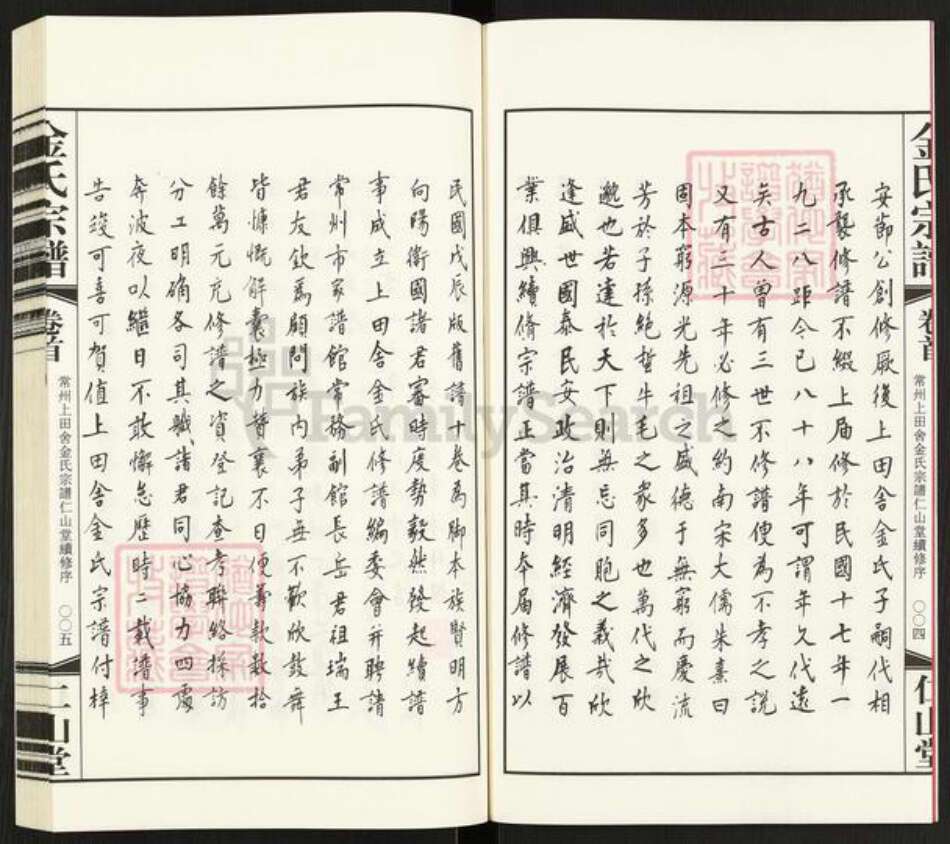 金氏宗譜
卷首
常州上田舍金氏宗譜仁山堂續修序
〇〇四
仁山堂
安節公創修厥後上田舍金氏子嗣代相
承襲修譜不綴上届修於民國十七年一
九二八距今已八十八年可謂年久代遠
矣古人曾有三世不修譜便為不孝之說
又有三十年必修之約南宋大儒朱熹曰
固本窮源光先祖之盛德于無窮而慶流
芳於子孫絕哲牛毛之衆多也萬代之欣
邈也若達於天下則無忘同胞之義哉欣
逢盛世國泰民安政治清明經濟發展百
業俱興續脩宗譜正當其時本届修譜以
民國戊辰版舊譜十卷為脚本族賢明方
向陽衛國諸君審時度勢毅然發起續譜
事成立上田舍金氏修譜編委會并聘請
常州市家譜館常務副館長岳君祖瑞王
君友欽為顧問族内弟子無不歡欣鼓舞
皆慷慨解囊極力贊襄不日便籌款數拾
餘萬元充修譜之資登記查考聯絡採訪
分工明确各司其職諸君同心協力四處
奔波夜以繼日不敢懈怠歷時二載譜事
告竣可喜可賀值上田舍金氏宗譜付梓
金氏宗譜
卷首
常州上田舍金氏宗譜仁山堂續修序
〇〇五
仁山堂
FamilySearch